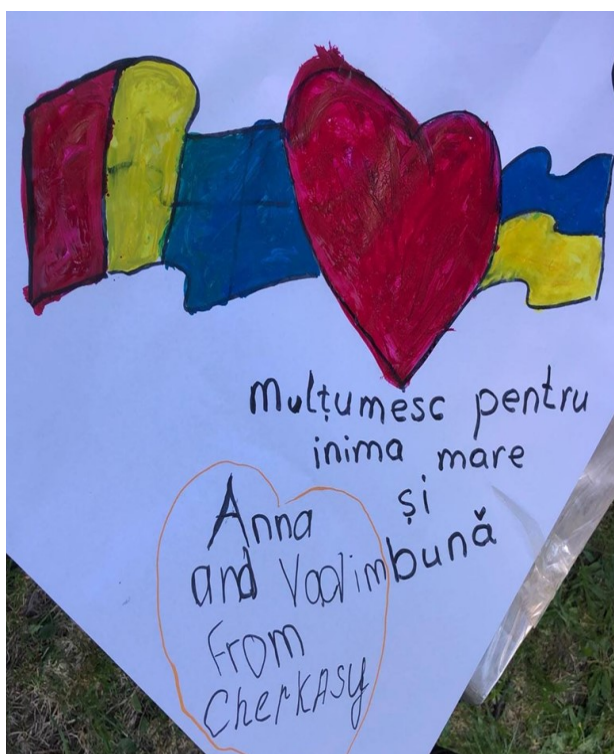 Mulțumesc pentru
inima mare
și
bună
Anna
and Vadim
From
Cherkasy